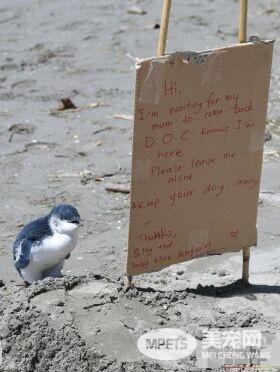 Hi,
I'm waiting for my
mum to come back
D.O.C knows I'm
here.
Please leave me
alone.
& Keap your dog away
Thanks,
Billy the
baby blue Penguin
MPETS
美宠网
MEICHONG WANG